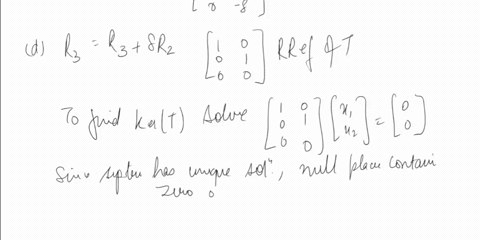 [ 0 -8 ]
(d) R₃ = R₃ + 8R₂ [1 0; 0 1; 0 0] RRef of T
To find Ker(T) solve [1 0; 0 1; 0 0] [x₁; x₂] = [0; 0]
Since system has unique solⁿ, null place contain
zero